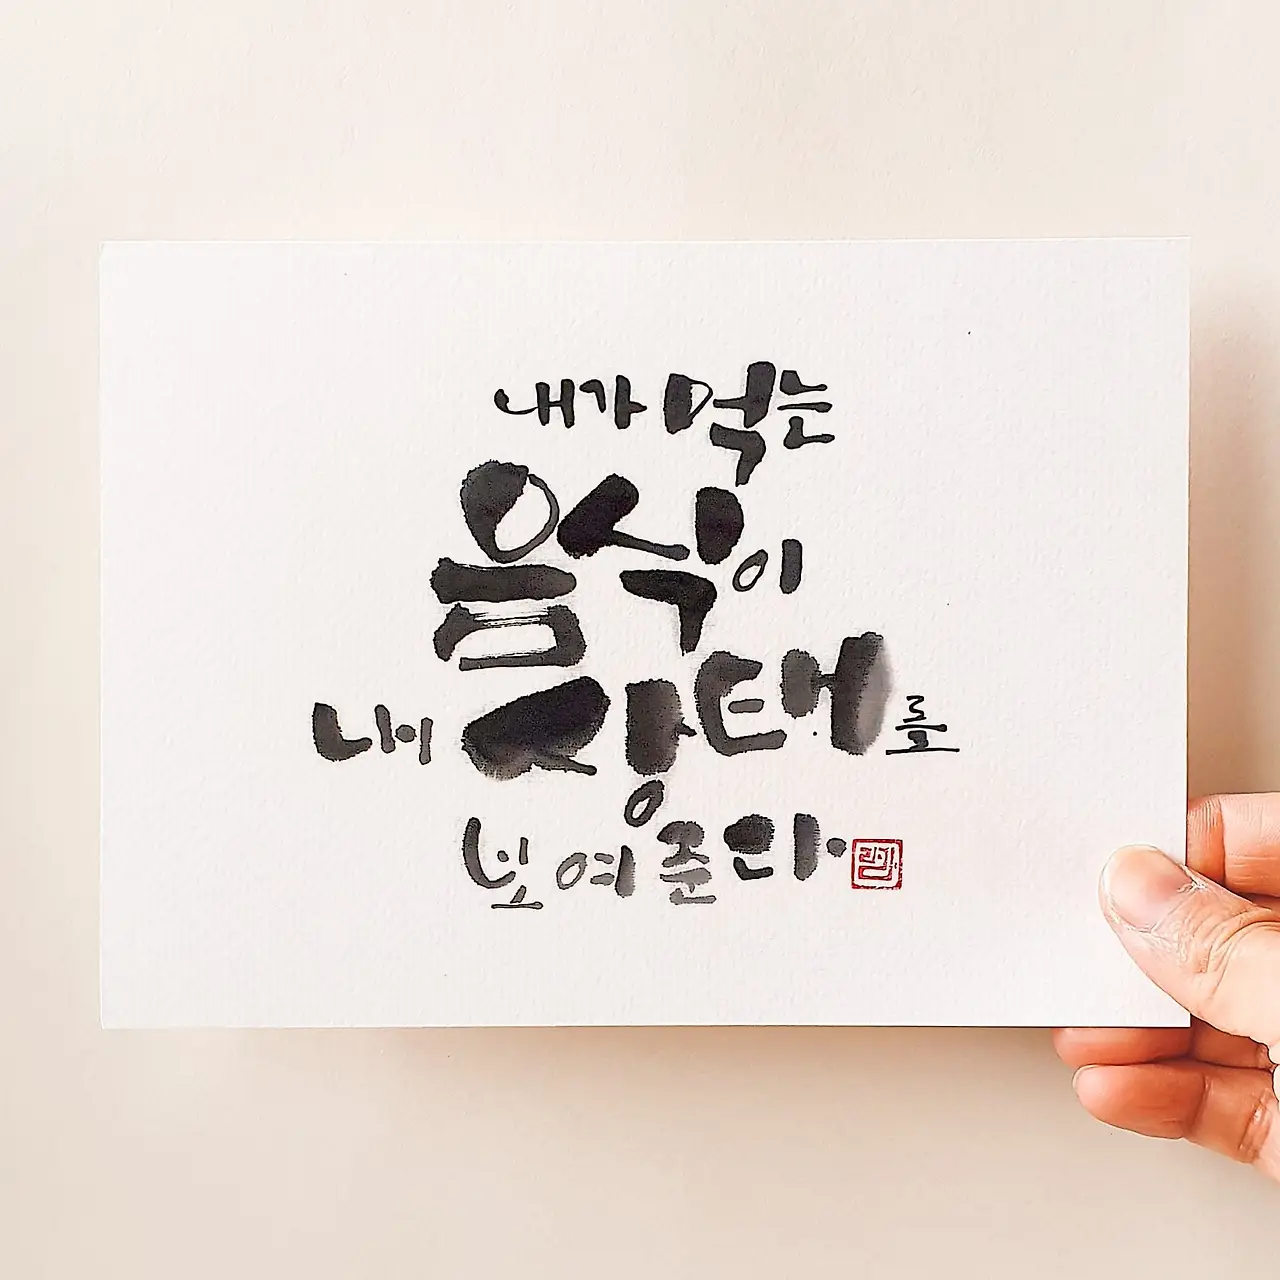 내가 먹는
음식이
내 장태를
보여준다.